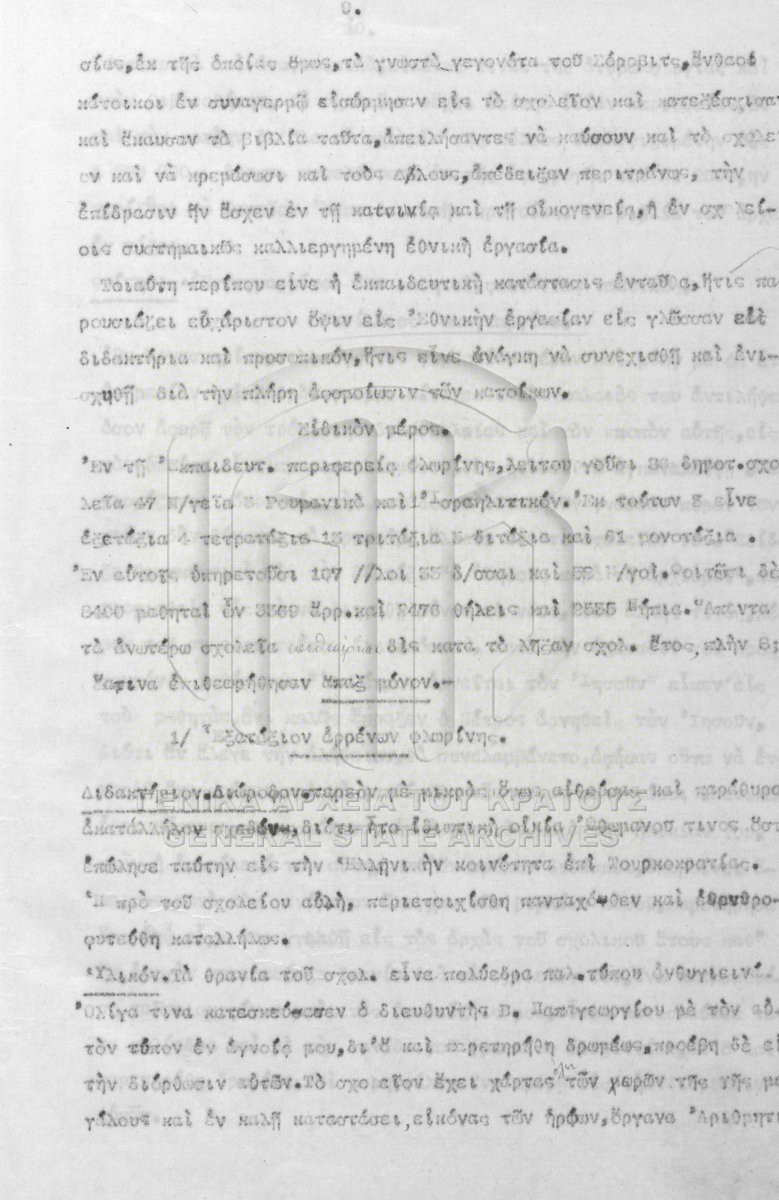 9.
σίας,ἐκ τῆς ὁποίας ὅμως,τὰ γνωστὰ γεγονότα τοῦ Σόροβιτς,ἔνθα οἱ
κάτοικοι ἐν συναγερμῷ εἰσώρμησαν εἰς τὸ σχολεῖον καὶ κατεξέσχισαν
καὶ ἔκαυσαν τὰ βιβλία ταῦτα,ἀπειλήσαντες νὰ καύσουν καὶ τὸ σχολεῖ
ον καὶ νὰ κρεμάσωσι καὶ τοὺς Δ/λους,ἀπέδειξαν περιτράνως, τὴν
ἐπίδρασιν ἣν ἔσχεν ἐν τῇ κοινωνίᾳ καὶ τῇ οἰκογενείᾳ,ἡ ἐν σχ λεί-
οις συστημαικῶς καλλιεργημένη ἐθνικὴ ἐργασία.
Τοιαύτη περίπου εἶνε ἡ ἐκπαιδευτικὴ κατάστασις ἐνταῦθα,ἥτις πα
ρουσιάζει εὐχάριστον ὄψιν εἰς Ἐθνικὴν ἐργασίαν εἰς γλῶσσαν εἰς
διδακτήρια καὶ προσωπικόν,ἥτις εἶνε ἀνάγκη νὰ συνεχισθῇ καὶ ἐνι-
σχυθῇ διὰ τὴν πλήρη ἀφομοίωσιν τῶν κατοίκων.
Εἰδικὸν μέρος.
Ἐν τῇ Ἐκπαιδευτ. περιφερείᾳ Φλωρίνης,λειτου γοῦσι 88 δημοτ.σχο
λεῖα 47 Ν/γεῖα 3 Ρουμανικὰ καὶ 1 Ἰσραηλιτικόν.Ἐκ τούτων 3 εἶνε
ἑξατάξια 4 τετρατάξια 13 τριτάξια διτάξια καὶ 61 μονοτάξια .
Ἐν αὐτοῖς ὑπηρετοῦσι 107 //λοι 33 δ/σσαι καὶ Ν/γοί.Φοιτῶσι δὲ
8400 μαθηταὶ ὧν 3389 ἄρρ.καὶ 2476 θήλεις καὶ 2535 Νήπια.Ἅπαντα
τὰ ἀνωτέρω σχολεῖα δὶς κατὰ τὸ λῆξαν σχολ. ἔτος,πλὴν 8;
ἅτινα ἐπιθεωρήθησαν ἅπαξ μόνον.-
1/ Ἑξατάξιον ἀρρένων Φλωρίνης.
Διδακτήριον.Διώροφον στερεὸν μὲ μικρὰς ὅμως αἰθούσας καὶ παράθυρα
ἀκατάλληλον σχεδόν,διότι ἦτο ἰδιωτικὴ οἰκία Ὀθωμανοῦ τινος ὅστ
ἐπώλησε ταύτην εἰς τὴν Ἑλλην ικὴν κοινότητα ἐπὶ Τουρκοκρατίας.
Ἡ πρὸ τοῦ σχολείου αὐλή, περιετοιχίσθη πανταχόθεν καὶ ἐδενδρο-
φυτεύθη καταλλήλως.
Ὑλικόν.Τὰ θρανία τοῦ σχολ. εἶνε πολύεδρα παλ.τύπου ἀνθυγιειν.
Ὀλίγα τινα κατασκεύασεν ὁ διευθυντὴς Β. Παπαγεωργίου μὲ τὸν αὐ
τὸν τύπον ἐν ἀγνοίᾳ μου,δι'ὃ καὶ παρετηρήθη δριμέως,προέβη δὲ εἰ
τὴν διόρθωσιν αὐτῶν.Τὸ σχο εῖον ἔχει χάρτας ὅλων τῶν χωρῶν τῆς γῆς με
γάλους καὶ ἐν καλῇ καταστάσει,εἰκόνας τῶν ἡρώων,ὄργανα Ἀριθμητι
ΓΕΝΙΚΑ ΑΡΧΕΙΑ ΤΟΥ ΚΡΑΤΟΥΣ
GENERAL STATE ARCHIVES